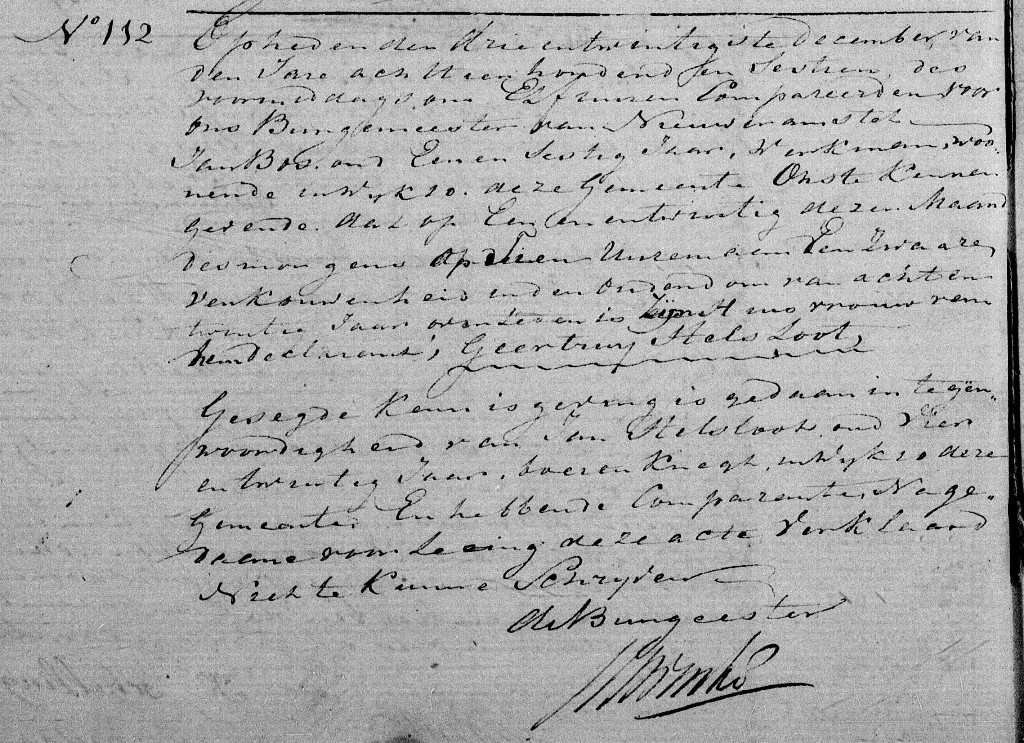 No 112
Op heden den drie entwintigste december, van
den Jare achtteen hondend en Sestien, des
voormiddags, om Elf uuren Compareerden voor
ons Bungemeester van Nieuweramstel
Jan Bos. oud Een en Sestig Jaar, Werkman, woo-
nende in Wyk 10. deze Gemeente Onste Kennen
gevende. dat op Een en entwintig dezer Maand
des morgens op Uuren aan Een Zwaare
verkouwenheid inden ouderdom van acht en
twintig Jaar overleden is zijnde vrouw ven
hem declarant, Geertruy Stelsloot,
Gesegde Kennisgeving is gedaan in tegen-
woordigheid van Jan Stelsloot, oud Vier
entwintig Jaar, boeren Knegh, in Wyk 10 deze
Gemeente. En hebbende Comparanten Nage-
daane voorleeing deze acte Verklaard
Niet te Kunne Schryven
de Bungeester